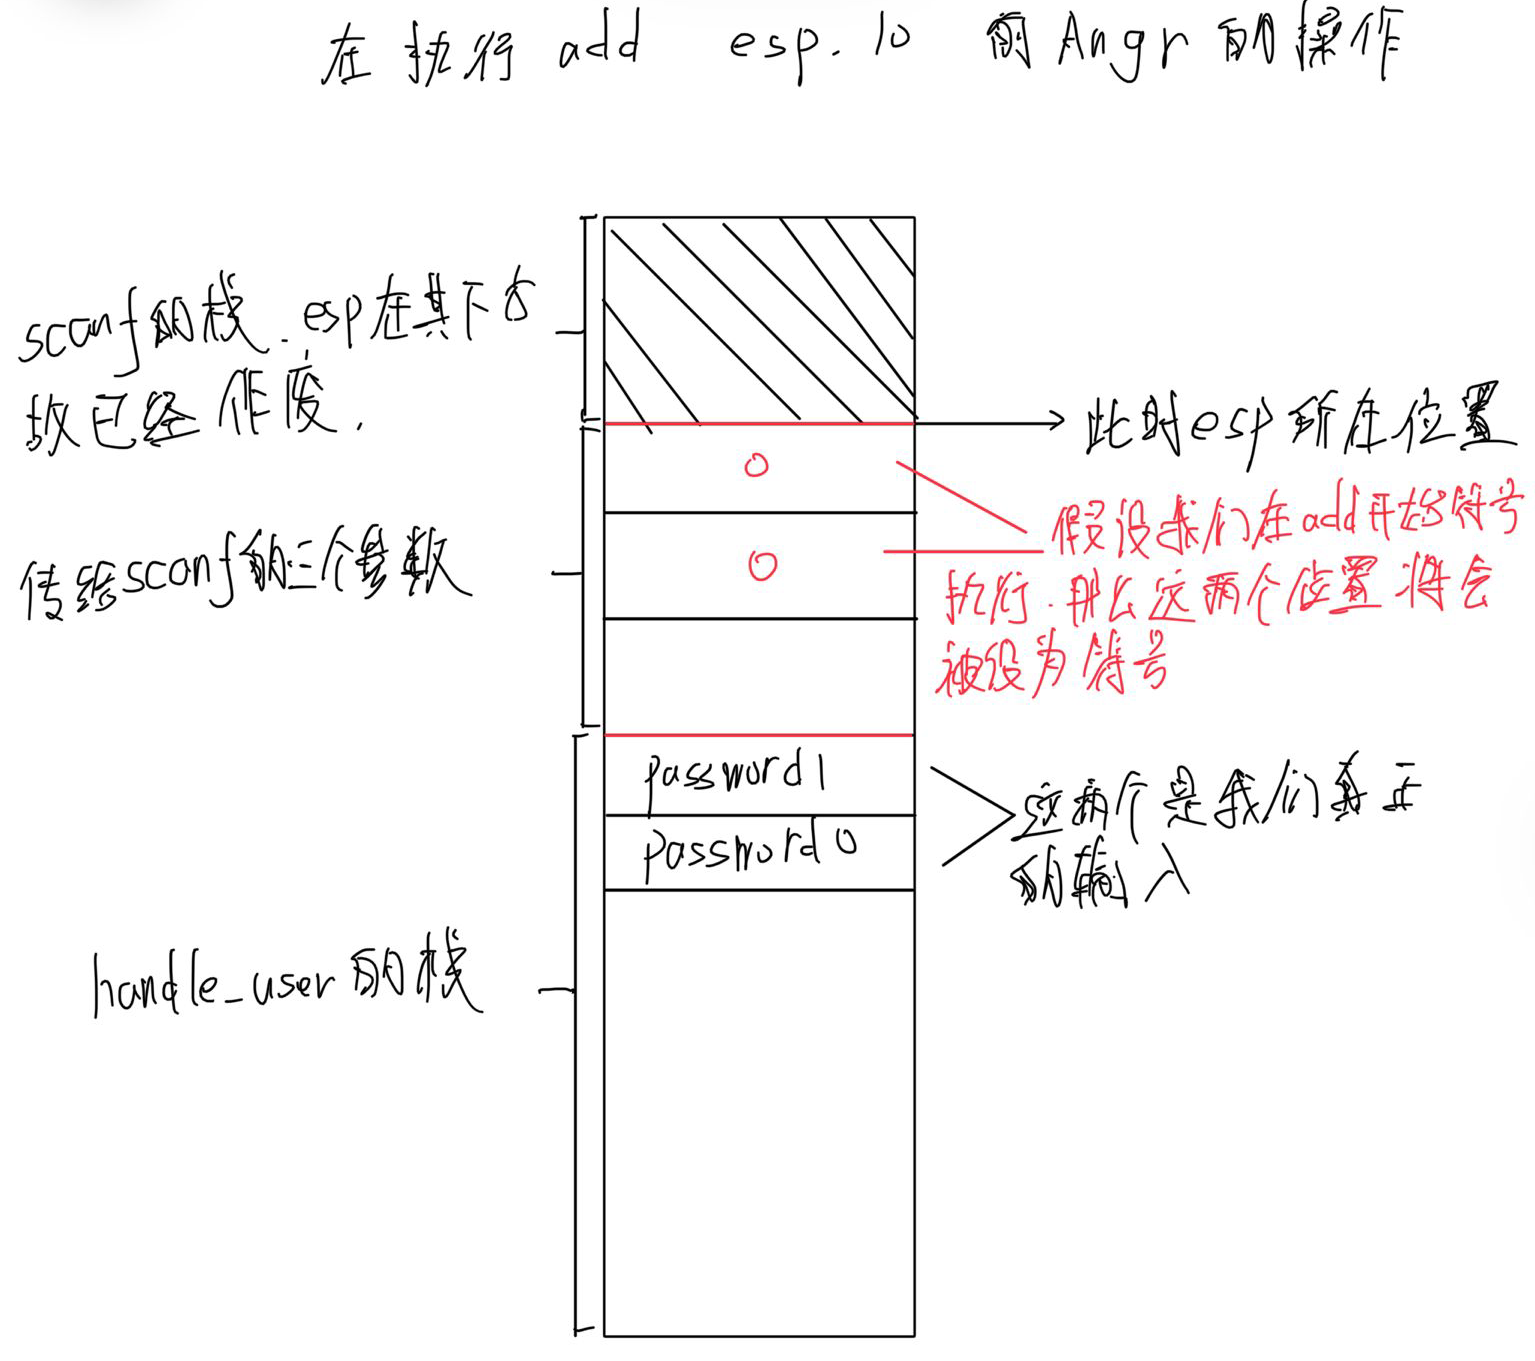 在执行 add esp. 10 前 Angr 的操作
scanf的栈. esp在其下方
故已经作废.
此时esp所在位置
0
假设我们在add开始符号
0
执行.那么这两个位置将会
被设为符号
传给scanf的三个参数
password1
password0
这两个是我们真正
的输入
handle_user的栈